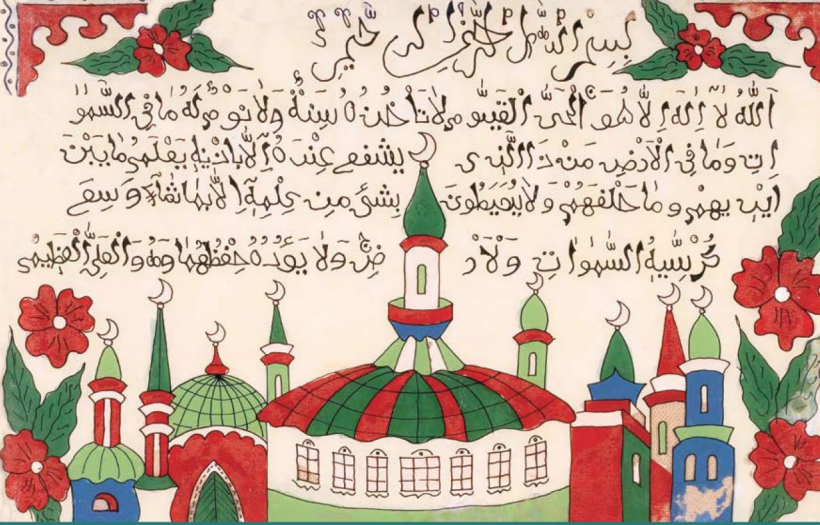 بسم الله الرحمن الرحيم
الله لا اله الا هو الحي القيوم لا تاخذه سنة ولا نوم له ما في السمو
ات وما في الارض من ذا الذي يشفع عنده الا باذنه يعلم ما بين
ايديهم وما خلفهم ولا يحيطون بشئ من علمه الا بما شاء وسع
كرسيه السموات ولارض ولا يؤده حفظهما وهو العلي العظيم